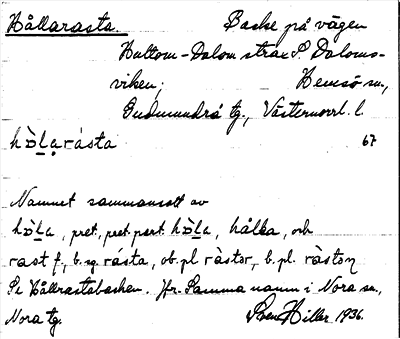 Hållarasta. Backe på vägen
Hultom-Dalom strax S. Daloms-
viken; Hemsö sn.,
Gudmundrå tg., Västernorrl. l.
hòl̯a̯rásta 67
Namnet sammansatt av
hòl̯a, pret., pret. part. hòl̯a, hålla, och
rast f., b. sg. rásta, ob. pl. ràstor, b. pl. ràston
Se Hållrastabacken. Jfr. Samma namn i Nora sn.,
Nora tg. Sven Hiller 1936.